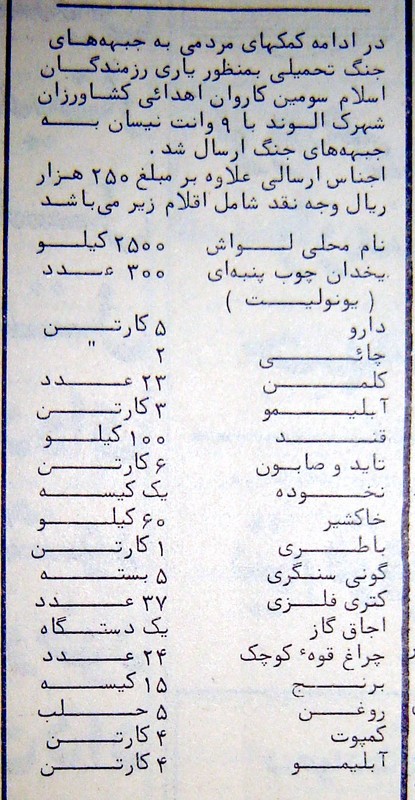 در ادامه کمکهای مردمی به جبهه‌های
جنگ تحمیلی بمنظور یاری رزمندگان
اسلام سومین کاروان اهدائی کشاورزان
شهرک الوند با ۹ وانت نیسان به
جبهه‌های جنگ ارسال شد .
اجناس ارسالی علاوه بر مبلغ ۲۵۰ هزار
ریال وجه نقد شامل اقلام زیر می‌باشد
نام محلی لواش ۲۵۰۰ کیلو
یخدان چوب پنبه‌ای ۳۰۰ عدد
( یونولیت )
دارو ۵ کارتن
چائی ۲ "
کلمن ۲۳ عدد
آبلیمو ۳ کارتن
قند ۱۰۰ کیلو
تاید و صابون ۶ کارتن
نخوده یک کیسه
خاکشیر ۶۰ کیلو
باطری ۱ کارتن
گونی سنگری ۵ بسته
کتری فلزی ۳۷ عدد
اجاق گاز یک دستگاه
چراغ قوهٔ کوچک ۲۴ عدد
برنج ۱۵ کیسه
روغن ۵ حلب
کمپوت ۴ کارتن
آبلیمو ۴ کارتن